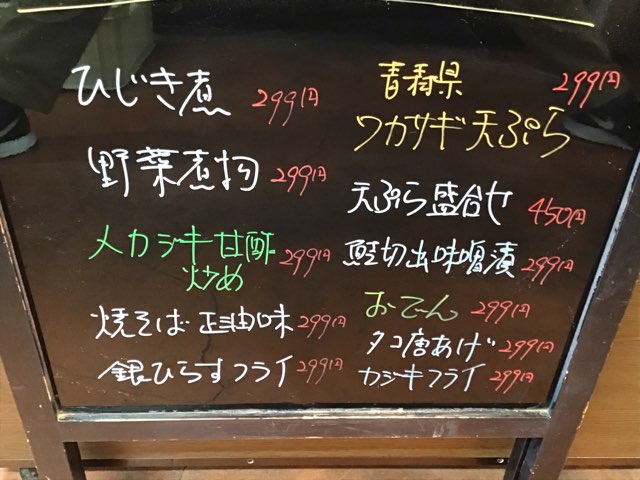 ひじき煮 299円
野菜煮物 299円
メカジキ甘酢 299円
炒め
焼そば 正油味 299円
銀ひらすフライ 299円
青森県 299円
ワカサギ天ぷら
天ぷら盛合せ 450円
鮭切出味噌漬 299円
おでん 299円
タコ唐あげ 299円
カジキフライ 299円